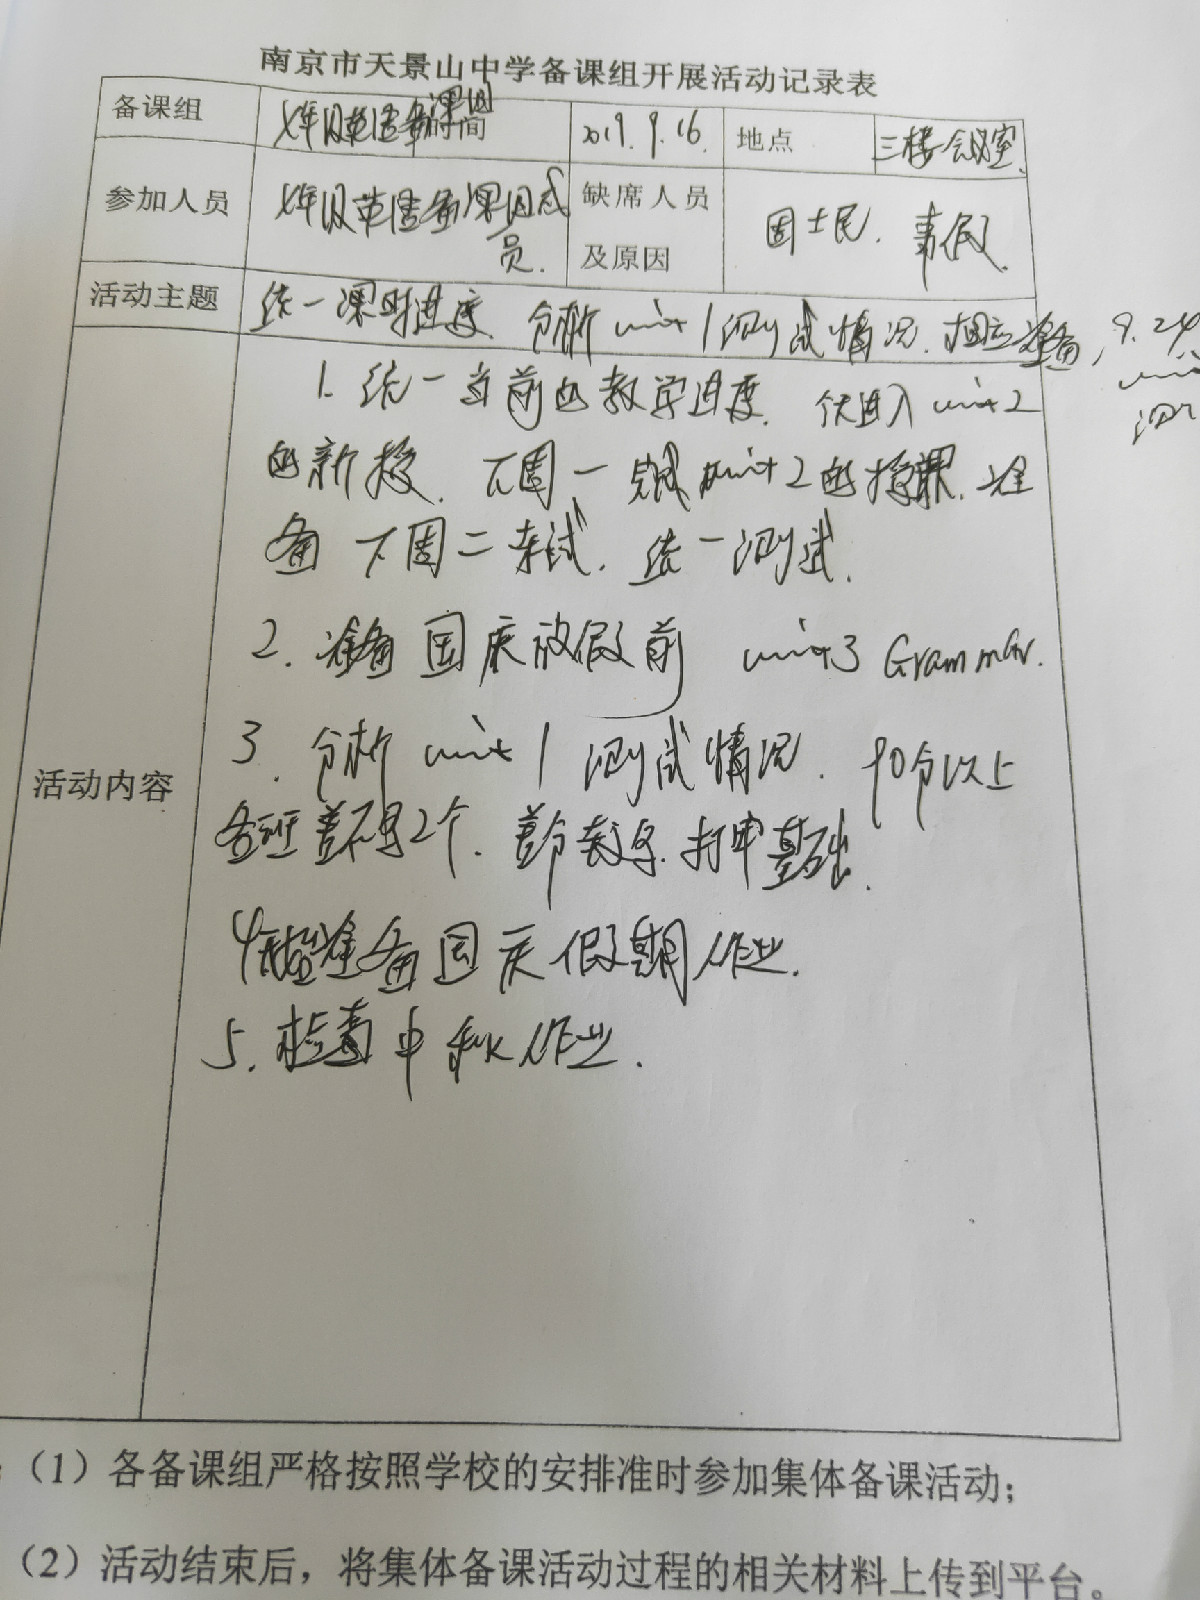 南京市天景山中学备课组开展活动记录表
备课组 七年级英语备课组 时间 2019.9.16. 地点 三楼会议室.
参加人员 七年级英语备课组成员. 缺席人员及原因 周士民. 事假.
活动主题 统一课时进度. 分析unit 1测试情况. 相应准备, 9.24
活动内容
1. 统一当前的教学进度. 进入unit 2
的新授. 下周一完成unit 2的授课. 准
备下周二考试. 统一测试.
2. 准备国庆放假前 unit 3 Grammar.
3. 分析unit 1测试情况. 90分以上
各班差不多2个. 差分较多. 打牢基础.
4 准备国庆假期作业.
5. 检查中秋作业.
(1)各备课组严格按照学校的安排准时参加集体备课活动;
(2)活动结束后，将集体备课活动过程的相关材料上传到平台。